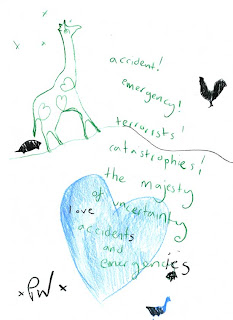 accident!
emergency!
terrorists!
catastrophies!
the majesty
of uncertainty
love
accidents
and
emergencies
x PW x